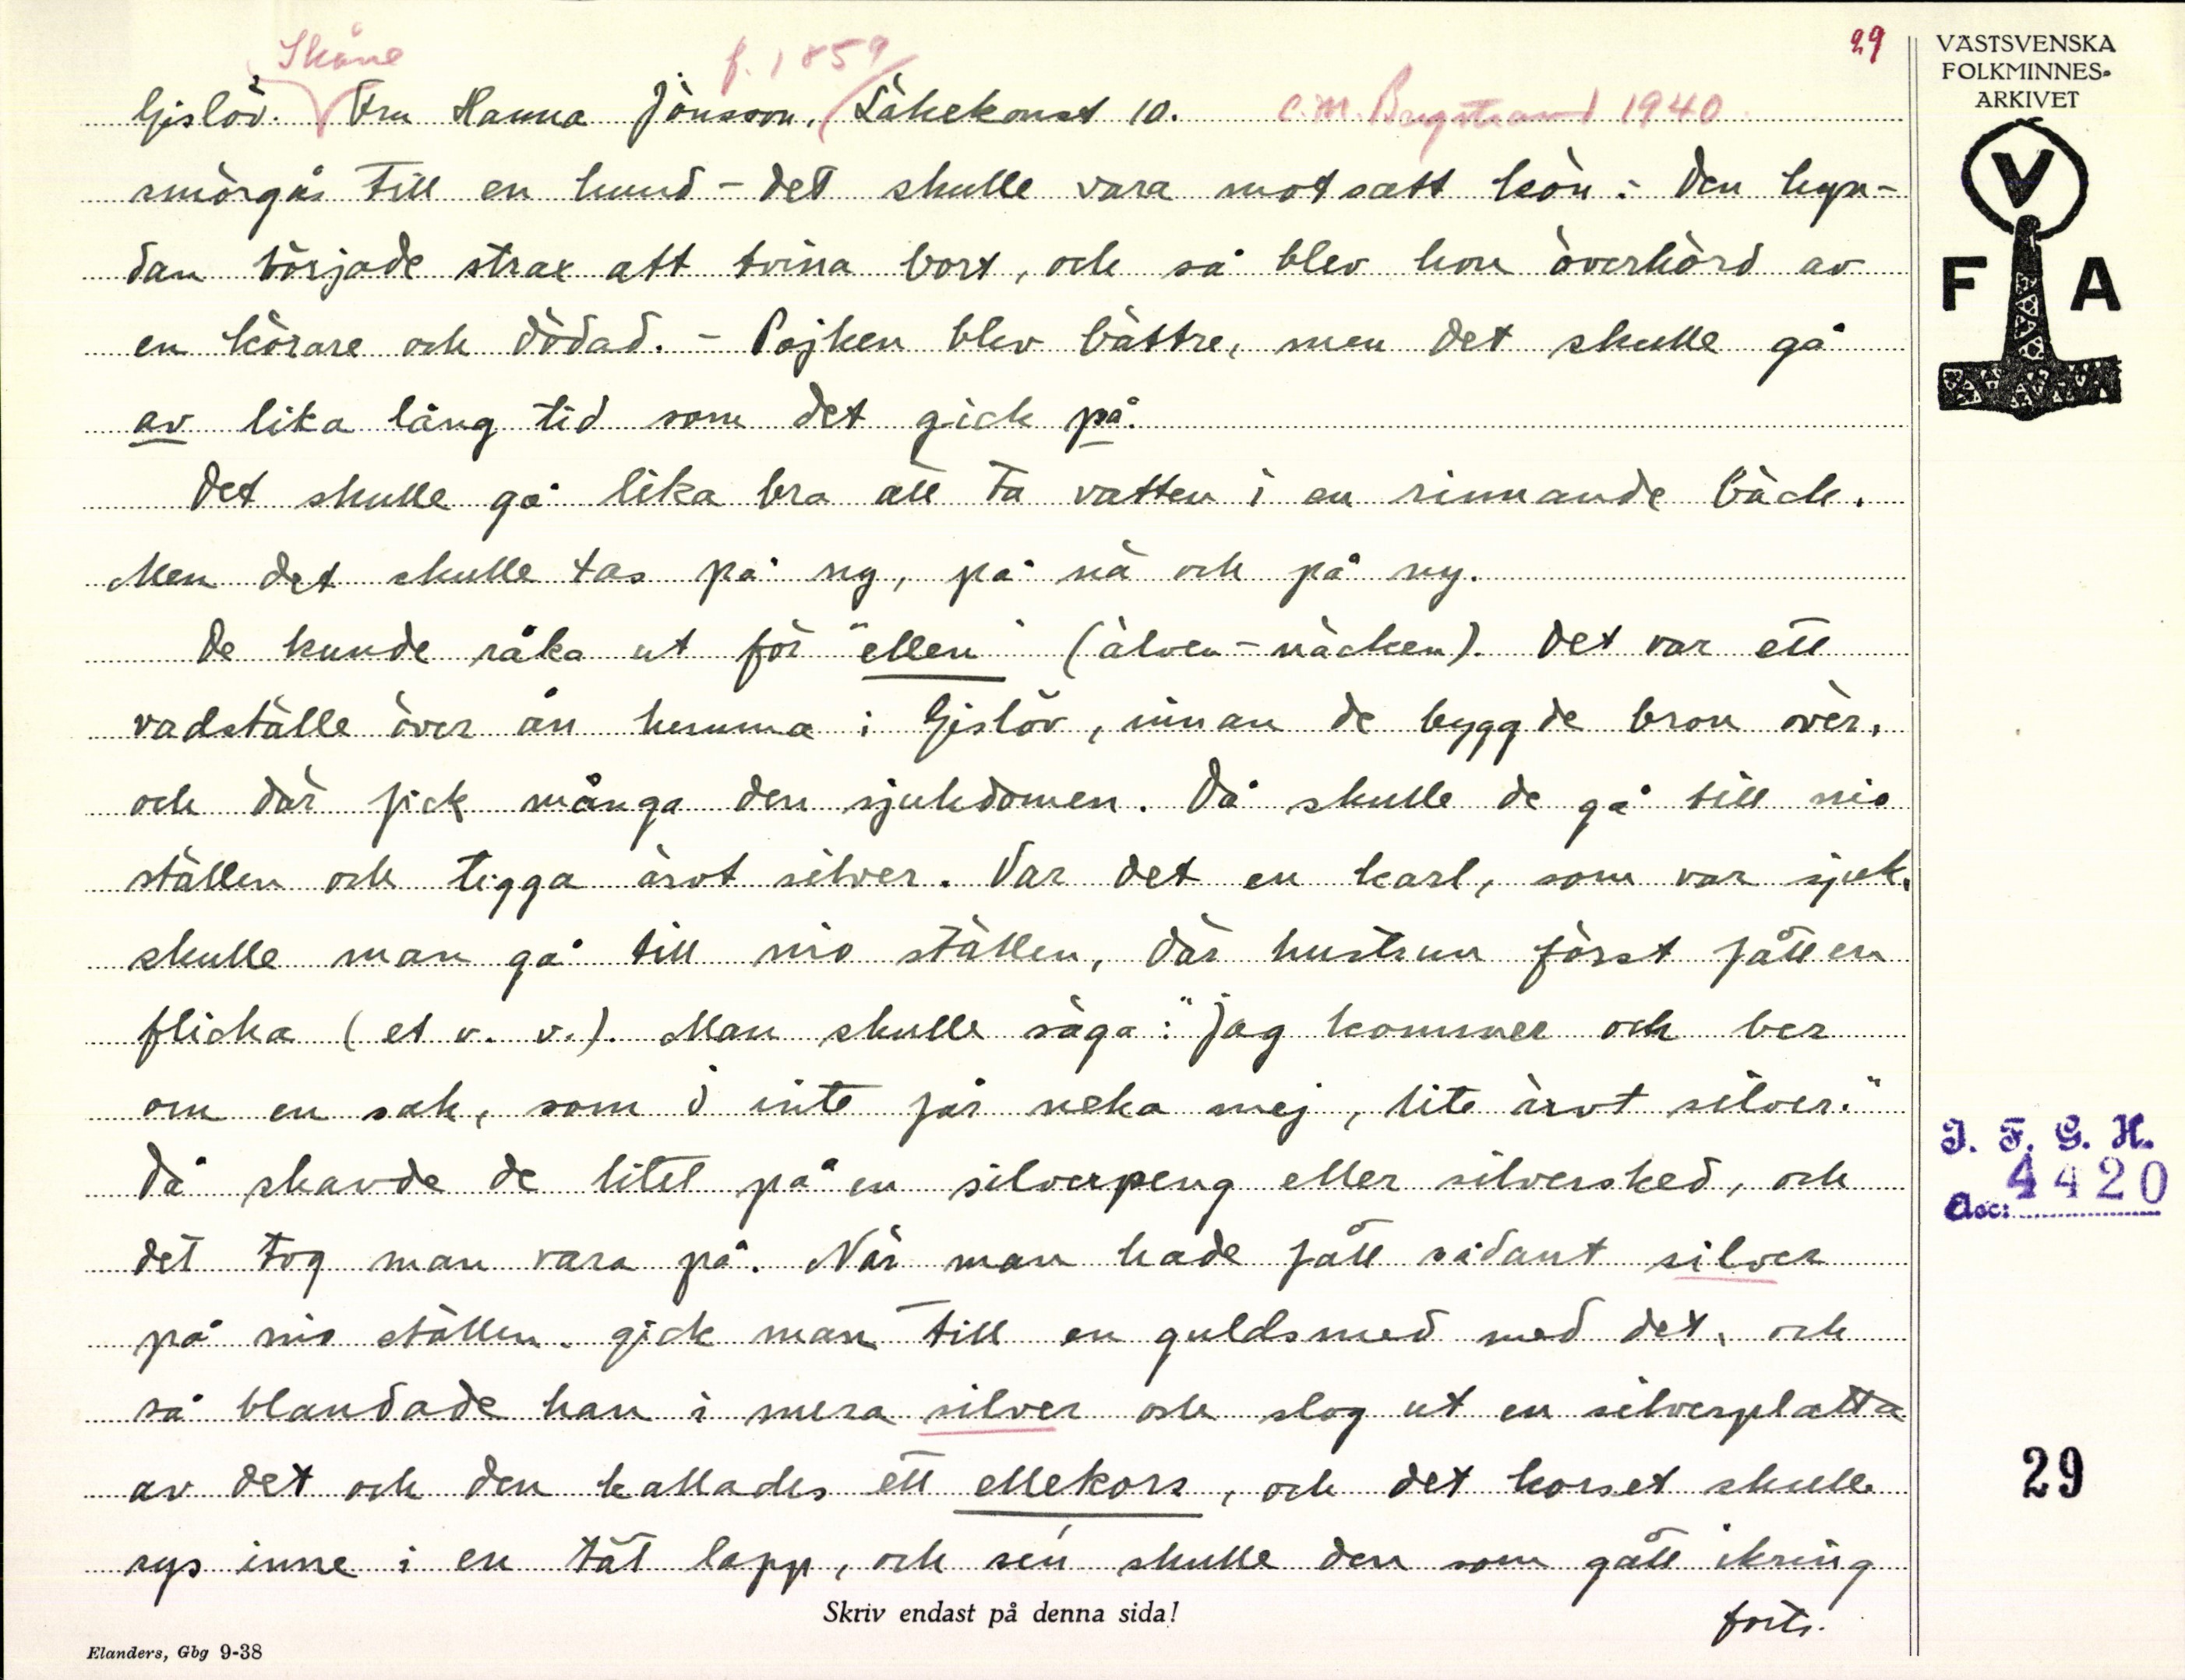 Skåne f. 1859 29
Gislöv. Fru Hanna Jönsson. Läkekonst 10. C.M. Bergstrand 1940.
smörgås till en hund – det skulle vara motsatt kön. Den hyn-
dan började strax att tvina bort, och så blev hon överkörd av
en körare och dödad. – Pojken blev bättre, men det skulle gå
av lika lång tid som det gick på.
Det skulle gå lika bra att ta vatten i en rinnande bäck.
Men det skulle tas på ny, på nä och på ny.
De kunde råka ut för "ellen" (älven – näcken). Det var ett
vadställe över ån hemma i Gislöv, innan de byggde bron över,
och där fick många den sjukdomen. Då skulle de gå till nio
ställen och tigga ärvt silver. Var det en karl, som var sjuk,
skulle man gå till nio ställen, där hustrun först fått en
flicka (et v. v.). Man skulle säga: "Jag kommer och ber
om en sak, som I inte får neka mej, lite ärvt silver."
Då skavde de litet på en silverpeng eller silversked, och
det tog man vara på. När man hade fått sådant silver
på nio ställen, gick man till en guldsmed med det, och
så blandade han i mera silver och slog ut en silverplatta
av det och den kallades ett ellekors, och det korset skulle
sys inne i en tät lapp, och sén skulle den som gått ikring
forts.
Skriv endast på denna sida!
Elanders, Gbg 9-38
VÄSTSVENSKA
FOLKMINNES-
ARKIVET
V
F A
I. F. G. H.
Acc: 4420
29